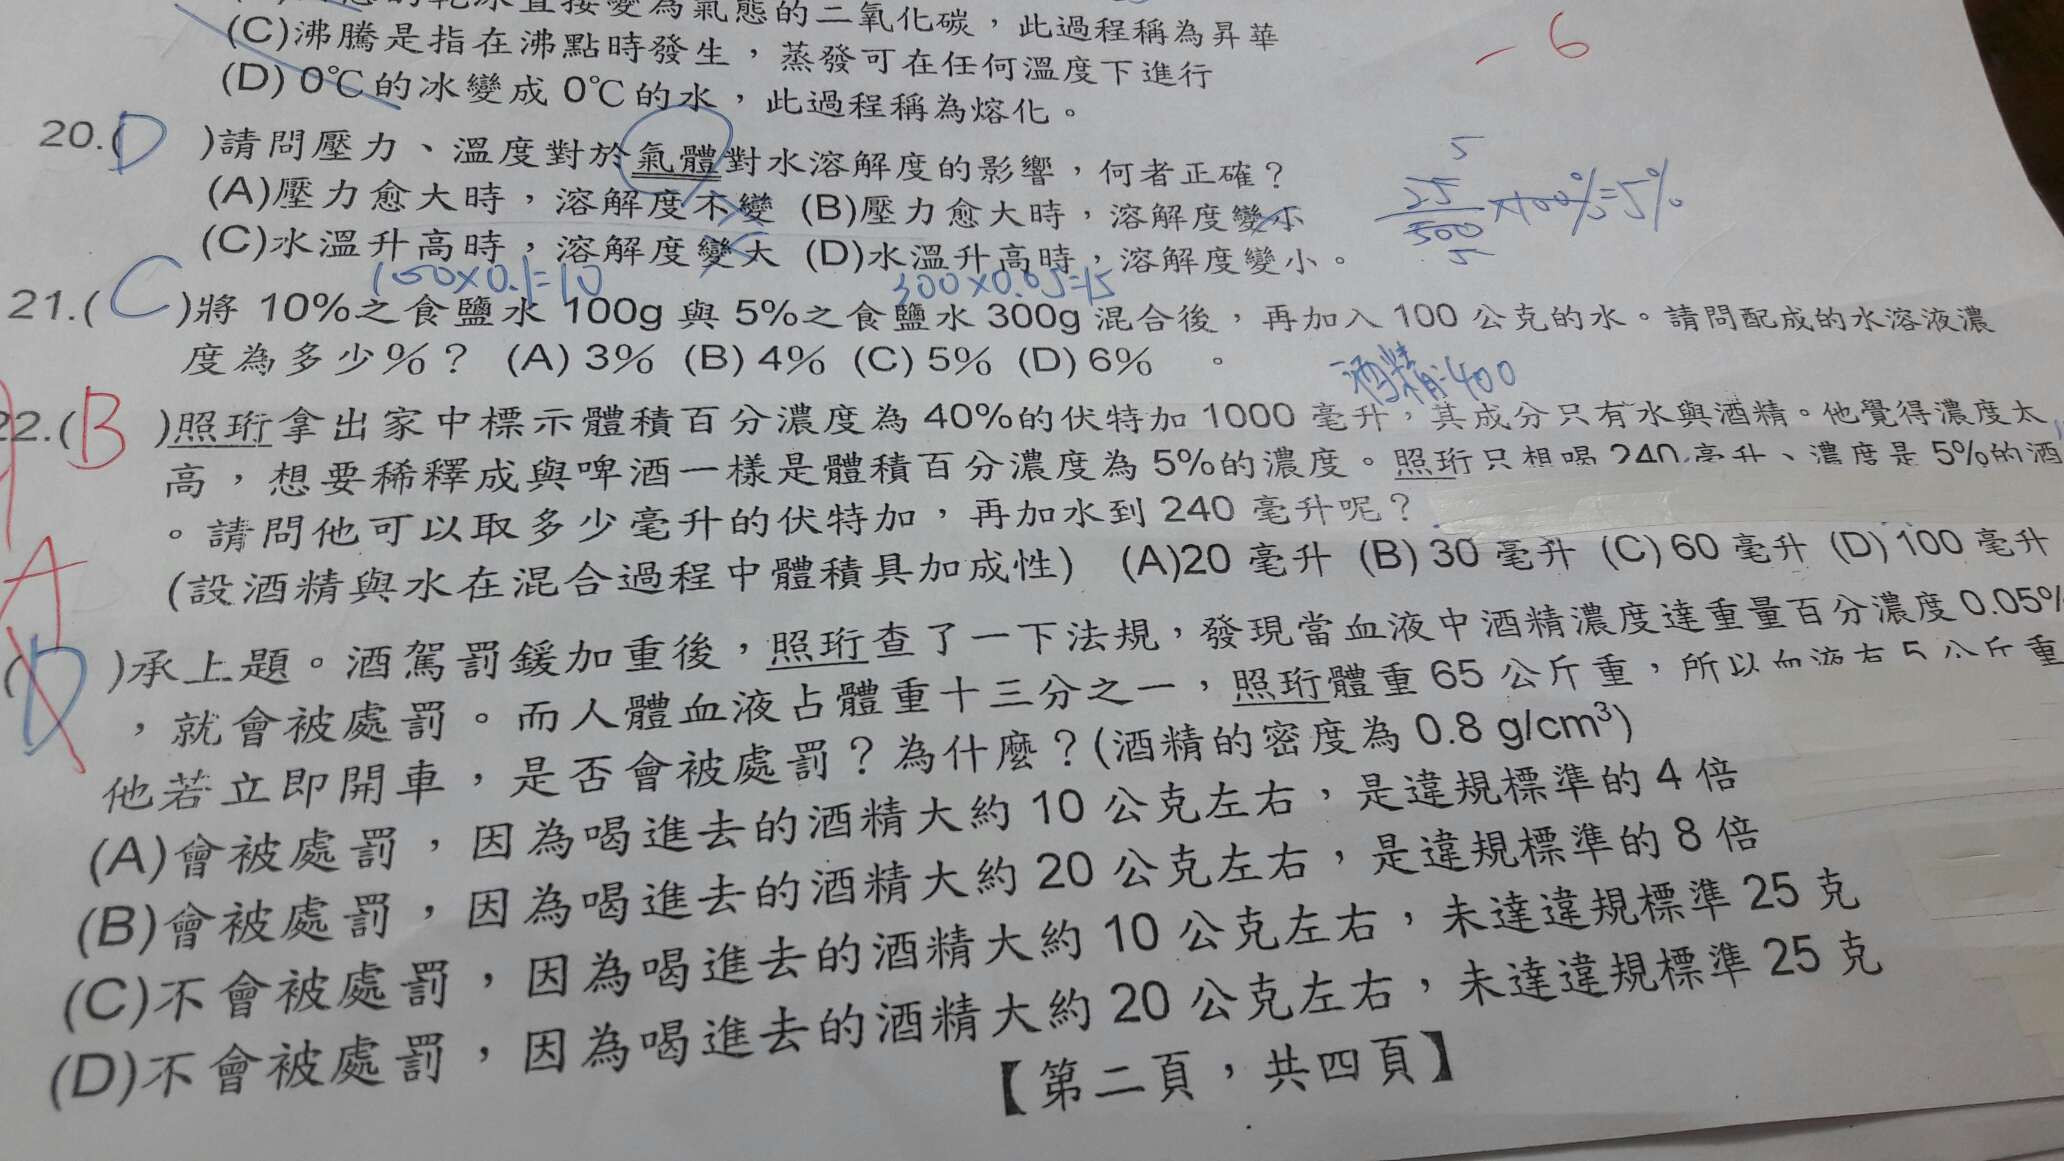 直接變為氣態的二氧化碳,此過程稱為昇華
(C)沸騰是指在沸點時發生,蒸發可在任何溫度下進行
- 6
(D) 0℃的冰變成 0℃的水,此過程稱為熔化。
20.(D )請問壓力、溫度對於氣體對水溶解度的影響,何者正確?
(A)壓力愈大時,溶解度不變 (B)壓力愈大時,溶解度變小
(C)水溫升高時,溶解度變大 (D)水溫升高時,溶解度變小。
5
25
500 ×100%=5%
5
100×0.1=10 300×0.05=15
21.( C )將 10%之食鹽水 100g 與 5%之食鹽水 300g 混合後,再加入 100 公克的水。請問配成的水溶液濃
度為多少%? (A) 3% (B) 4% (C) 5% (D) 6% 。
酒精:400
22.( B )照珩拿出家中標示體積百分濃度為 40%的伏特加 1000 毫升,其成分只有水與酒精。他覺得濃度太
高,想要稀釋成與啤酒一樣是體積百分濃度為 5%的濃度。照珩只想喝 240 毫升、濃度是 5%的酒
。請問他可以取多少毫升的伏特加,再加水到 240 毫升呢?
(設酒精與水在混合過程中體積具加成性) (A)20 毫升 (B) 30 毫升 (C) 60 毫升 (D) 100 毫升
A
( D )承上題。酒駕罰鍰加重後,照珩查了一下法規,發現當血液中酒精濃度達重量百分濃度 0.05%
,就會被處罰。而人體血液占體重十三分之一,照珩體重 65 公斤重,所以血液有 5 公斤重
他若立即開車,是否會被處罰?為什麼?(酒精的密度為 0.8 g/cm³)
(A)會被處罰,因為喝進去的酒精大約 10 公克左右,是違規標準的 4 倍
(B)會被處罰,因為喝進去的酒精大約 20 公克左右,是違規標準的 8 倍
(C)不會被處罰,因為喝進去的酒精大約 10 公克左右,未達違規標準 25 克
(D)不會被處罰,因為喝進去的酒精大約 20 公克左右,未達違規標準 25 克
【第二頁,共四頁】